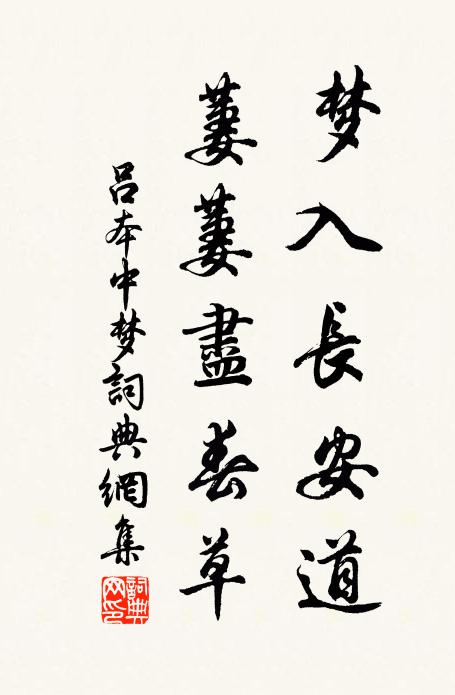 梦入長安道
萋萋盡春草
吕本中梦詞典網集
詞典网印